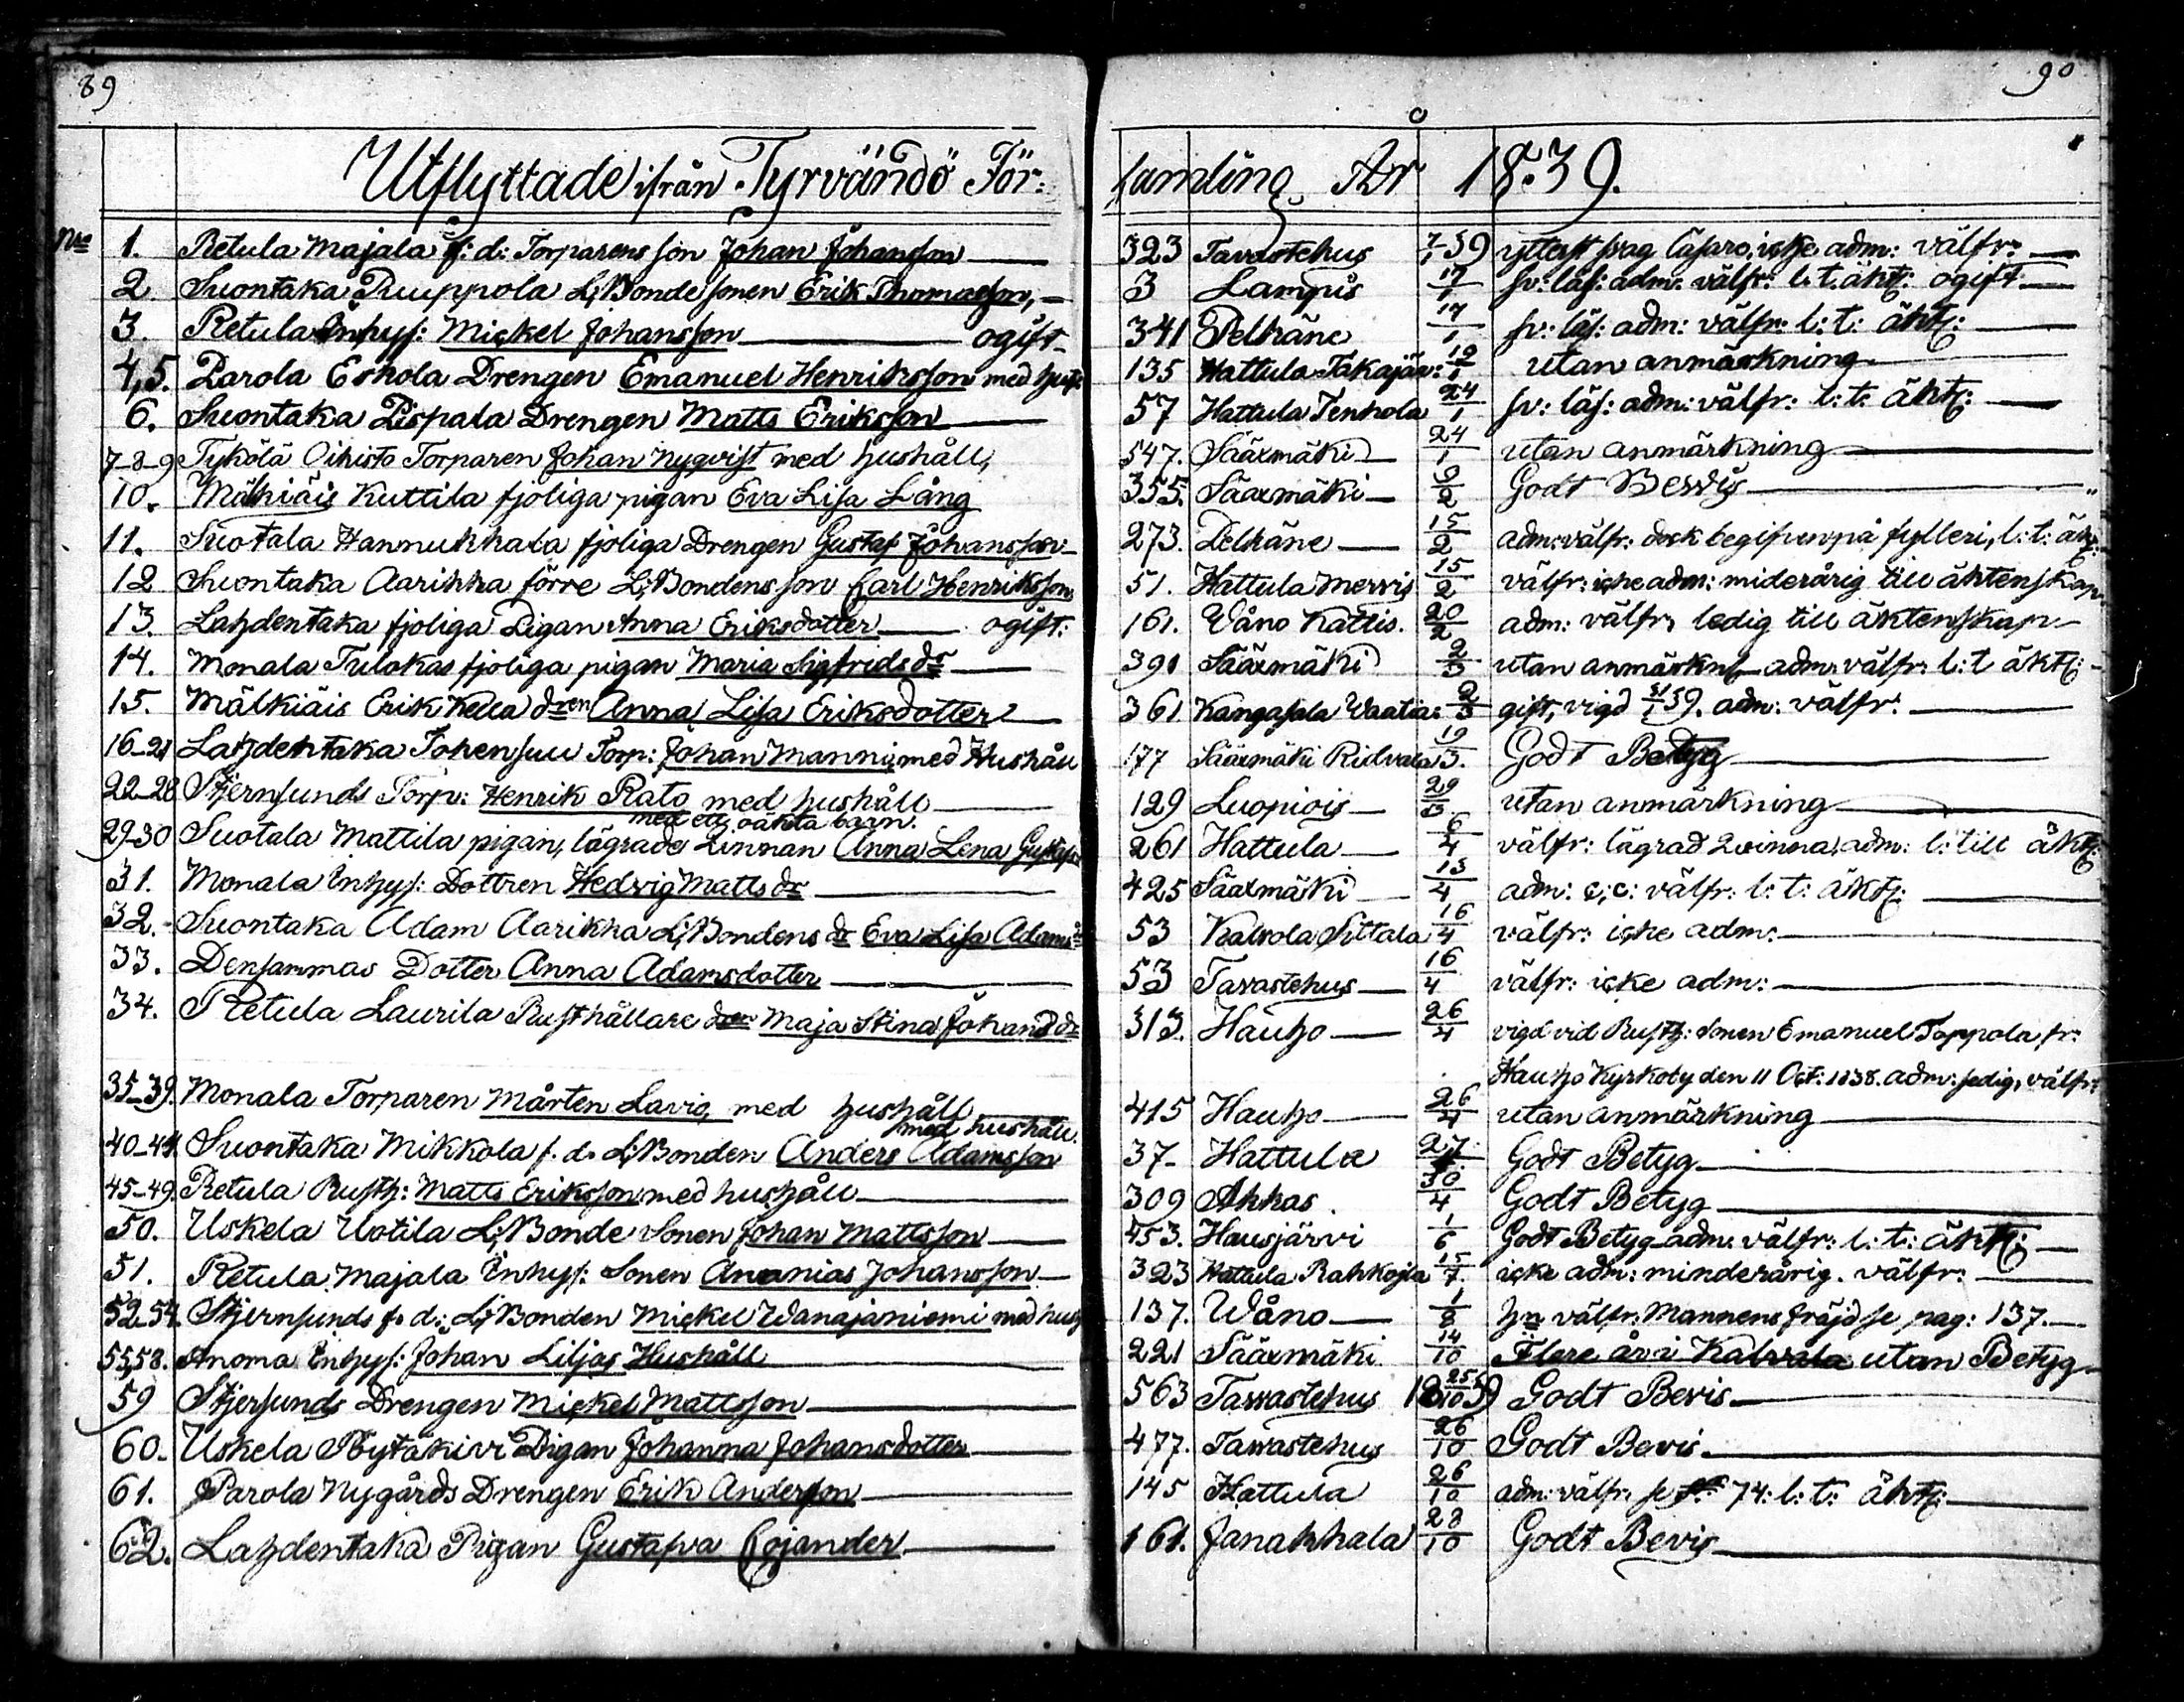 89
Utflyttade ifrån Tyrvändö För:
Nro 1. Retula Majala f: d: Torparens son Johan Johansson
2 Suontaka Puuppola L;Bonde sonen Erik Thomasson,
3. Retula Inhys: Mickel Johansson ogift
4,5. Parola Eskola Drengen Emanuel Henriksson med hush:
6. Suontaka Pispala Drengen Matts Eriksson
7-8-9 Tykölä Oihisto Torparen Johan Nyqvist med hushåll,
10. Mälkiäis Kuttila fjoliga pigan Eva Lisa Lång
11. Suotala Hannukkala fjoliga Drengen Gustaf Johansson
12 Suontaka Aarikka förre L;Bondens son Carl Henriksson
13. Lahdentaka fjoliga Pigan Anna Eriksdotter ogift:
14. Monala Tulokas fjoliga pigan Maria Sigfrids dr
15. Mälkiäis Erik Kella dren Anna Lisa Eriksdotter
16-21 Lahdentaka Johensuu Torp: Johan Manni, med Hushåll
22-28 Stjernsunds Torp: Henrik Rato med hushåll
med ett oäkta barn.
29-30 Suotala Mattila pigan, lägrade Qvinnan Anna Lena Gustafsd
31. Monala Inhys: Dottren Hedvig Matts dr
32. Suontaka Adam Aarikka L;Bondens dr Eva Lisa Adams dr
33. Densammas Dotter Anna Adamsdotter
34. Retula Laurila Rusthållare dren Maja Stina Johans dr
35-39. Monala Torparen Mårten Lavio, med hushåll
med hushåll.
40-44. Suontaka Mikkola f. d. L;Bonden Anders Adamsson
45-49. Retula Rusth: Matts Eriksson med hushåll
50. Uskela Uotila L;Bonde Sonen Johan Mattsson
51. Retula Majala Inhys: Sonen Ananias Johansson
52-54. Stjernsunds f. d.: L;Bonden Mickel Wanajaniemi med hush
55,58. Anoma Inhys: Johan Liljas Hushåll
59 Stjersunds Drengen Mickel Mattsson
60. Uskela Pöytäkivi Pigan Johanna Johansdotter
61. Parola Nygårds Drengen Erik Andersson
62. Lahdentaka Pigan Gustafva Cojander
90
samling År 1839.
323 Tavastehus 7/1 39 ytterst svag läsare, icke adm: välfr:
3 Lampis 17/1 sv: läs: adm: välfr: l: t. äkt: ogift
341 Pelkäne 17/1 sv: läs: adm: välfr: l: t: äkt:
135 Hattula Takajär: 19/1 utan anmärkning
57 Hattula Tenhola 24/1 sv: läs: adm: välfr: l: t: äkt:
547. Sääxmäki 24/1 utan anmärkning
355. Sääxmäki 9/2 Godt Bevis
273. Pelkäne 15/2 adm: välfr: dock begifven på fylleri, l: t: äkt:
51. Hattula Mervis 15/2 välfr: icke adm: miderårig till äktenskap
161. Wåno Kattis. 20/2 adm: välfr, ledig till äktenskap
391 Sääxmäki 2/3 utan anmärkn: adm: välfr: l: t äkt:
361 Kangasala Waatia: 2/3 gift, vigd 31/1 39. adm: välfr:
177 Sääxmäki Ridvala 19/3. Godt Betyg
129 Luopiois 29/3 utan anmärkning
261 Hattula 6/4 välfr: lägrad Qvinna, adm: l: till äkt:
425 Sääxmäki 13/4 adm: c;c: välfr: l: t: äkt:
53 Kalvola Sittala 16/4 välfr: icke adm:
53 Tavastehus 16/4 välfr: icke adm:
313. Hauho 26/4 vigd vid Rusth: Sonen Emanuel Toppola fr:
Hauho Kyrkoby den 11 Oct: 1838. adm: sedig, välfr:
415 Hauho 26/4 utan anmärkning
37 Hattula 27 Godt Betyg
309 Akkas. 30/4 Godt Betyg
453. Hausjärvi 1/6 Godt Betyg adm: välfr: l: t: äkt:
323 Hattula Rahkoila 15/7. icke adm: minderårig. välfr:
137. Wåno 1/8 hn välfr: Mannens fräjd se pag: 137.
221 Sääxmäki 14/10 Flere år i Kalvola utan Betyg
563 Tavastehus 18 25/10 39 Godt Bevis
477. Tavastehus 26/10 Godt Bevis
145 Hattula 26/10 adm: välfr: se 74: l: t: äkt:
161. Janakkala 28/10 Godt Bevis